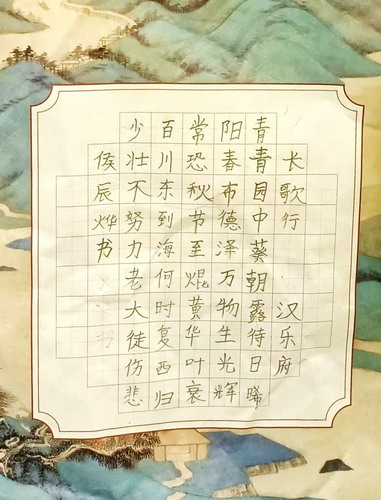 长歌行 汉乐府
青青园中葵朝露待日晞
阳春布德泽万物生光辉
常恐秋节至焜黄华叶衰
百川东到海何时复西归
少壮不努力老大徒伤悲
侯辰烨书